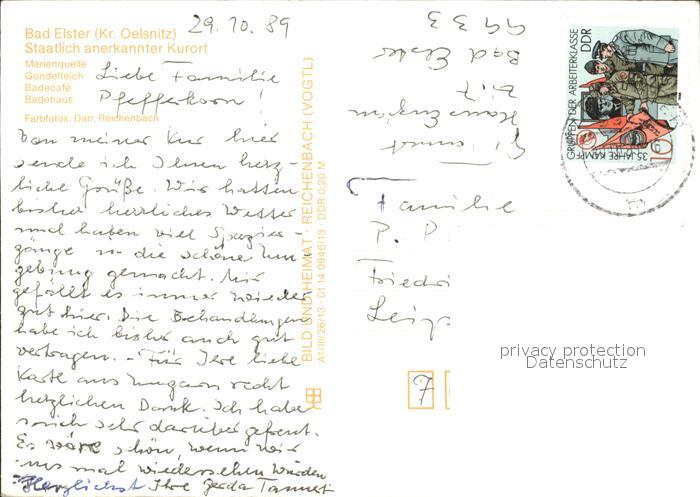 29.10.89
Bad Elster (Kr. Oelsnitz)
Staatlich anerkannter Kurort
Marienquelle
Gondelteich
Badecafé
Badehaus
Farbfotos: Darr, Reichenbach
Liebe Familie
Pfefferkorn!
Von meiner Kur hier
sende ich Ihnen herz-
liche Grüße. Wir hatten
bisher herrliches Wetter
und haben viel Spazier-
gänge in die schöne Um
gebung gemacht. Mir
gefällt es immer wieder
gut hier. Die Behandlungen
habe ich bisher auch gut
vertragen. - Für Ihre liebe
Karte aus Ungarn recht
herzlichen Dank. Ich habe
mich sehr darüber gefreut.
Es wäre schön, wenn wir
uns mal wiedersehen würden
Herzlichst Ihre Gerda Tannert
BILD UND HEIMAT · REICHENBACH (VOGTL)
A1/III/26/13 · 01 14 0946/13 · DDR 0,20 M
G. Tannert
Haus
Bad Elster
9933
Familie
P. P
Friedri
Leip
7
35 JAHRE KAMPF
GRUPPEN DER ARBEITERKLASSE
DDR
privacy protection
Datenschutz